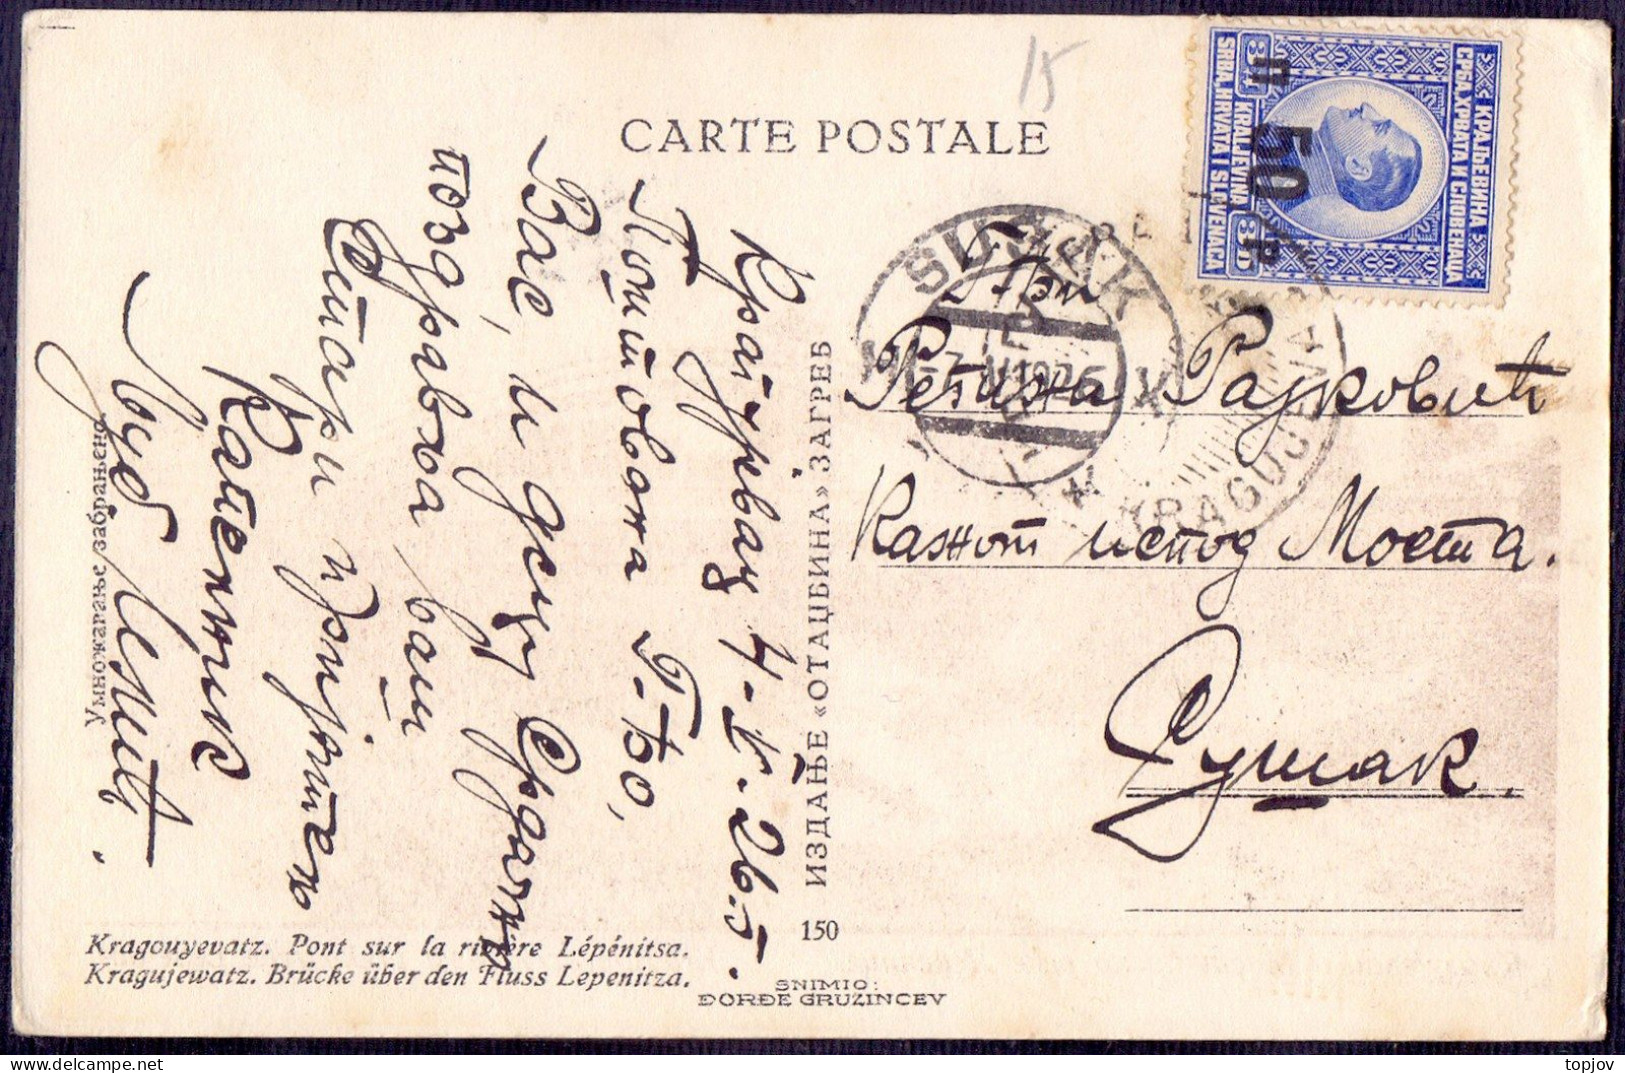 15
CARTE POSTALE
КРАЉЕВИНА
СРБА, ХРВАТА И СЛОВЕНАЦА
KRALJEVINA
SRBA, HRVATA I SLAVENACA
50
SUŠAK
KRAGUJEVAC
Крагујевац 4-V-26.
Поштована Г-ђо,
Вас, и децу Срдачно
поздравља, ваш
Стари пријатељ
Капетник
При
Рајковић
испод Моста.
Сушак.
ИЗДАЊЕ «ОТАЏБИНА» ЗАГРЕБ
Умножавање забрањено
150
Kragouyevatz. Pont sur la rivière Lépénitsa.
Kragujewatz. Brücke über den Fluss Lepenitza.
SNIMIO:
ĐORĐE GRUZINCEV
topjov